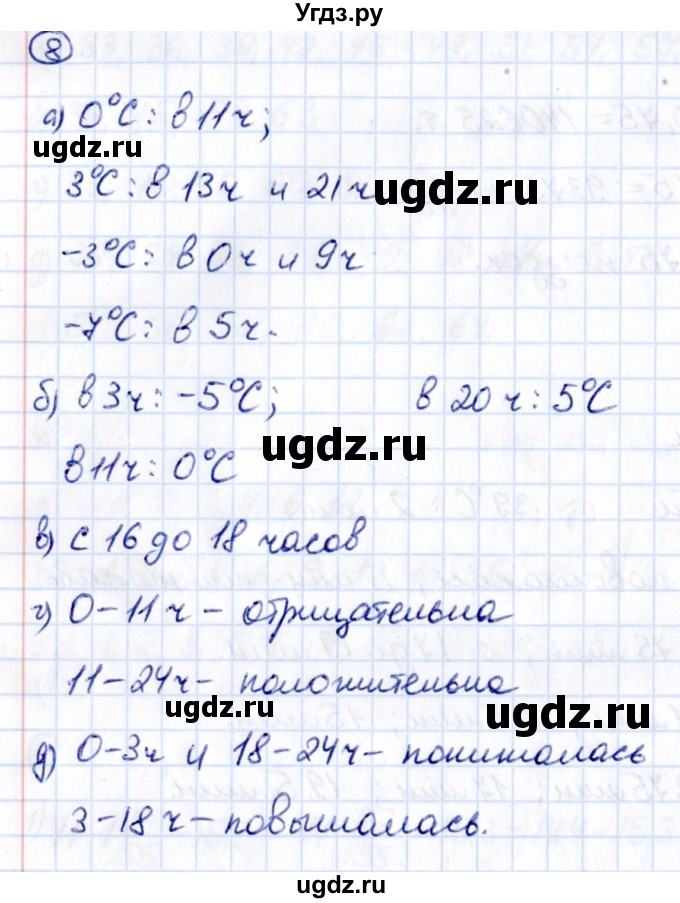 Угдз.ру
8
а) 0°С: в 11 ч;
ugdz.ru
3°С: в 13 ч и 21 ч
ugdz.ru
-3°С: в 0 ч и 9 ч
-7°С: в 5 ч.
б) в 3 ч: -5°С; в 20 ч: 5°С
ugdz.ru
ugdz.ru
в 11 ч: 0°С
в) с 16 до 18 часов
г) 0-11 ч - отрицательна
11-24 ч - положительна
ugdz.ru
ugdz.ru
д) 0-3 ч и 18-24 ч - понижалась
3-18 ч - повышалась.
ugdz.ru